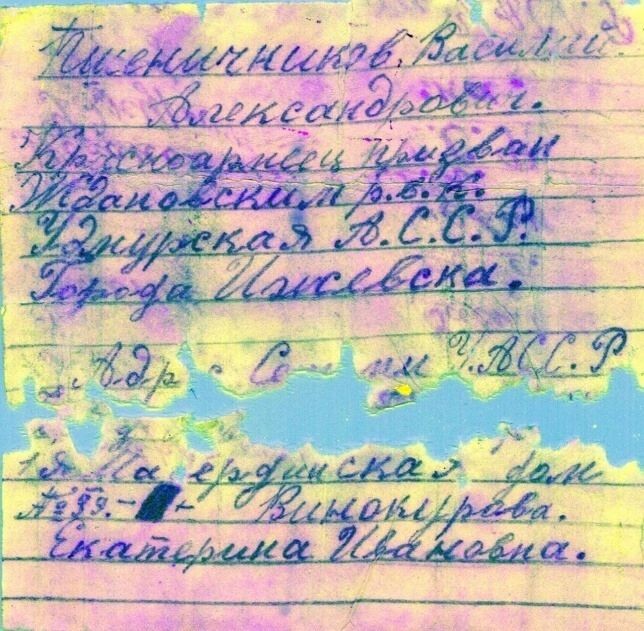 Пшеничников, Василий
Александрович.
Красноармеец призван
Ждановским р.в.к.
Удмурская А.С.С.Р.
Города Ижевска.
У.АССР
дом
№ 99. Винокурова.
Екатерина Ивановна.